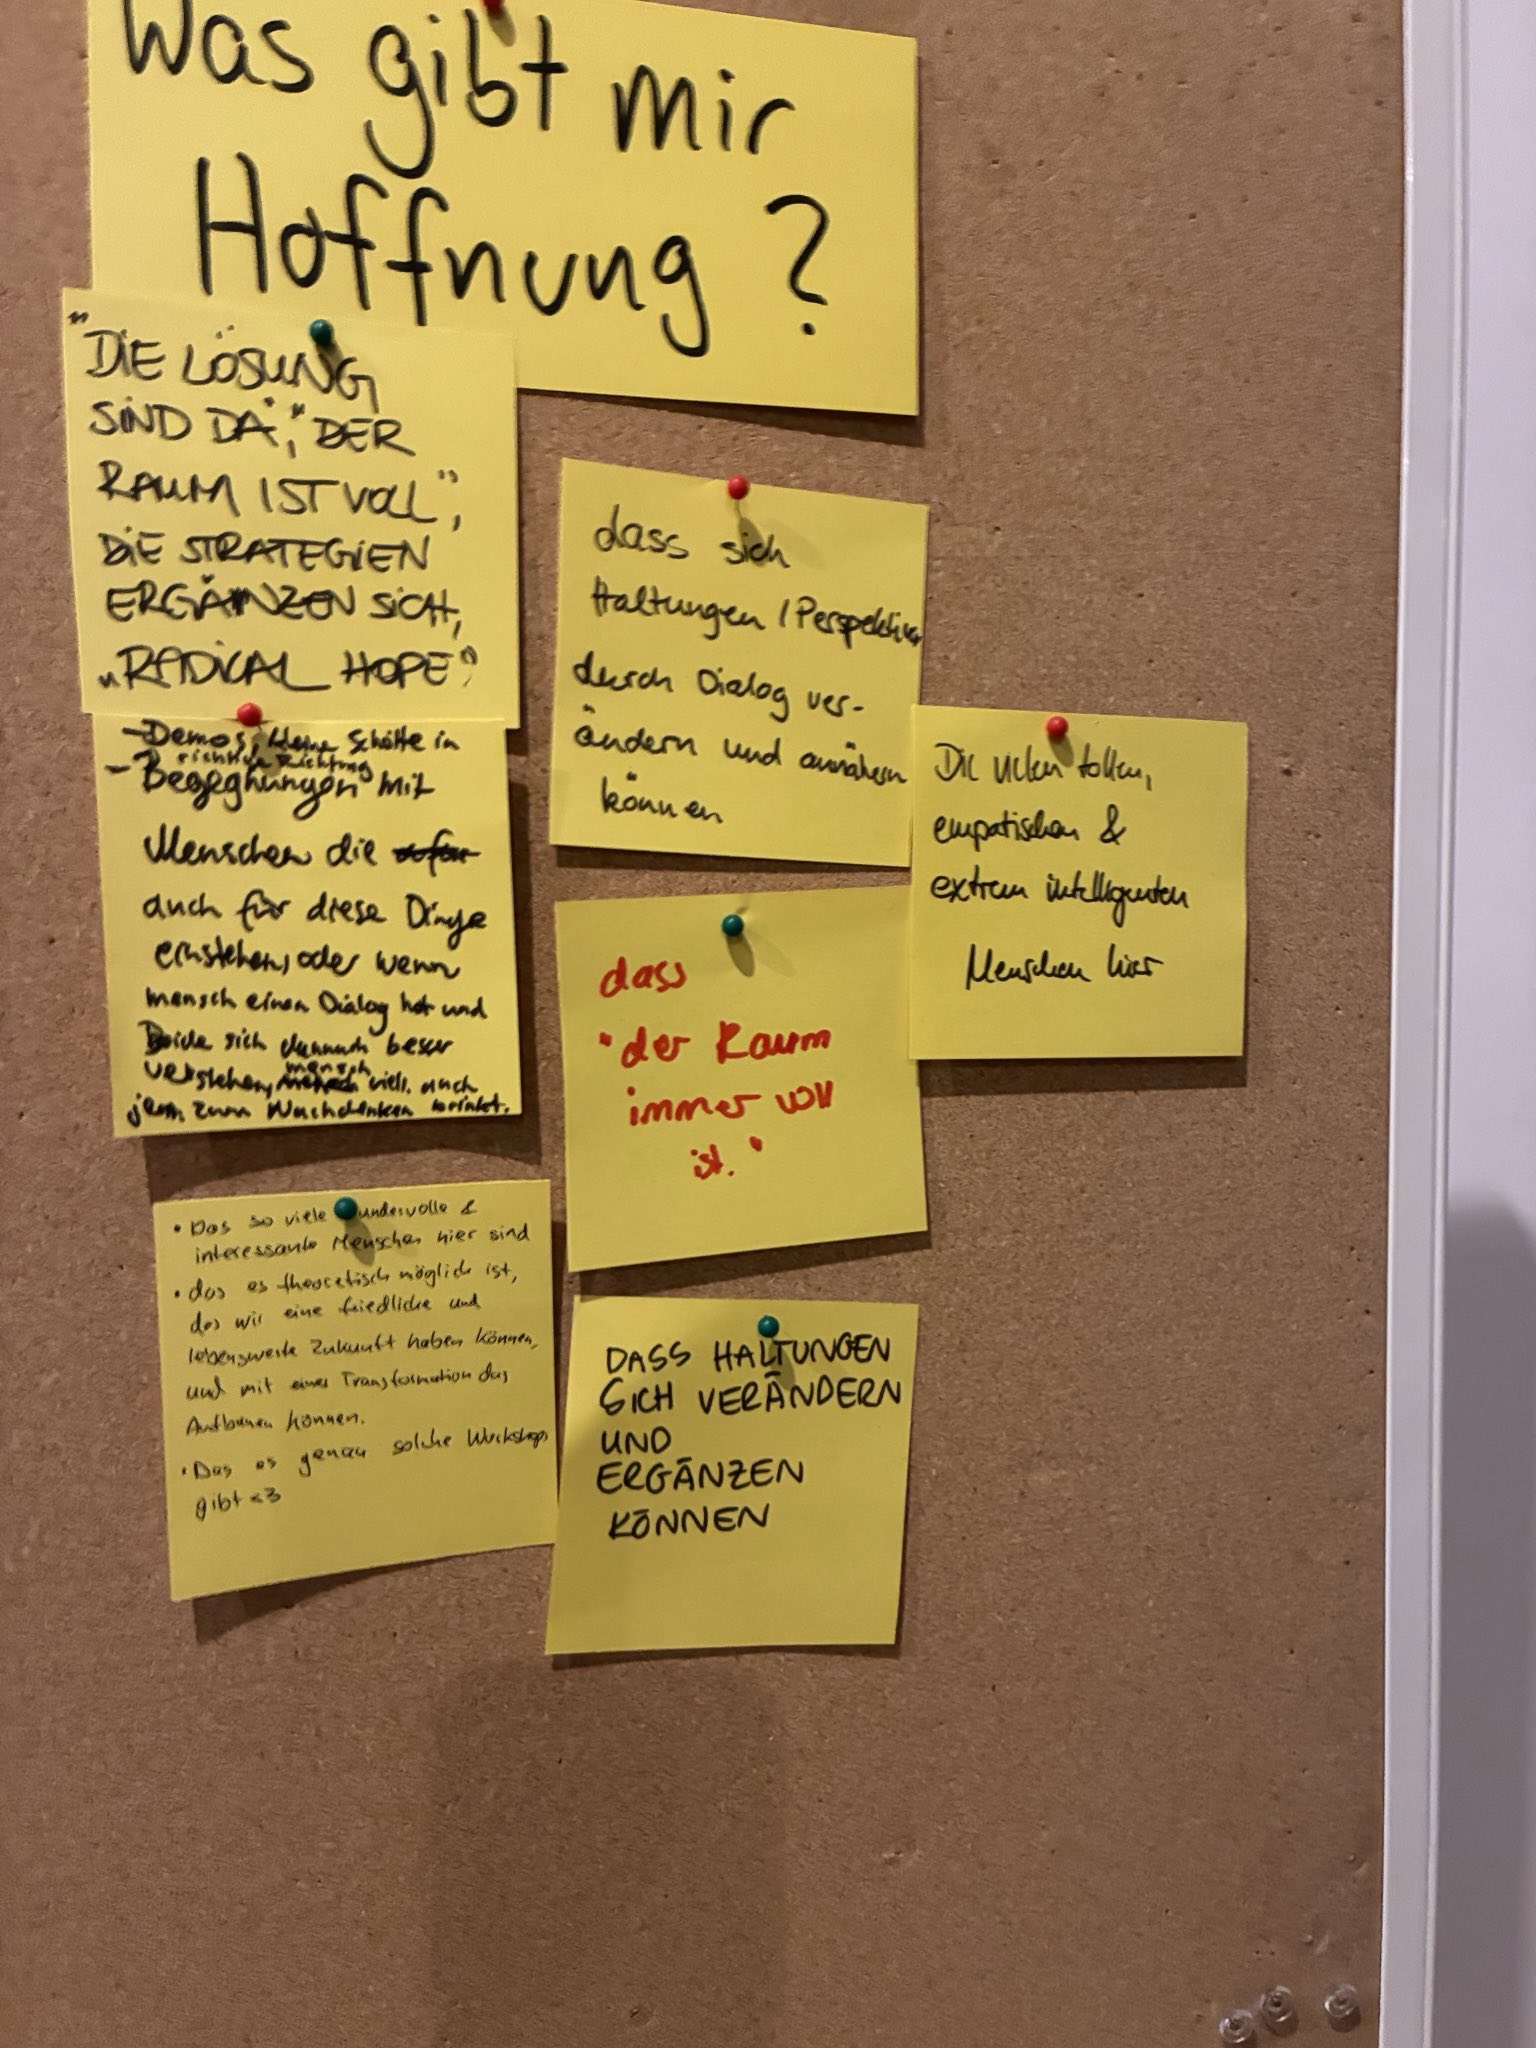 Was gibt mir
Hoffnung ?
"DIE LÖSUNG
SIND DA", "DER
RAUM IST VOLL",
DIE STRATEGIEN
ERGÄNZEN SICH,
„RADICAL HOPE"
- Demos, kleine Schritte in
richtige Richtung
- Begegnungen mit
Menschen die
auch für diese Dinge
einstehen, oder wenn
mensch einen Dialog hat und
Beide sich danach besser
verstehen, mensch viell. auch
jem. zum Nachdenken bringt.
• Das so viele wundervolle &
interessante Menschen hier sind
• das es theoretisch möglich ist,
das wir eine friedliche und
lebenswerte Zukunft haben können,
und mit einer Transformation das
Aufbauen können.
• Das es genau solche Workshops
gibt <3
dass sich
Haltungen / Perspektiven
durch Dialog ver-
ändern und annähern
können
dass
"der Raum
immer voll
ist."
DASS HALTUNGEN
SICH VERÄNDERN
UND
ERGÄNZEN
KÖNNEN
Die vielen tollen,
empatischen &
extrem intelligenten
Menschen hier